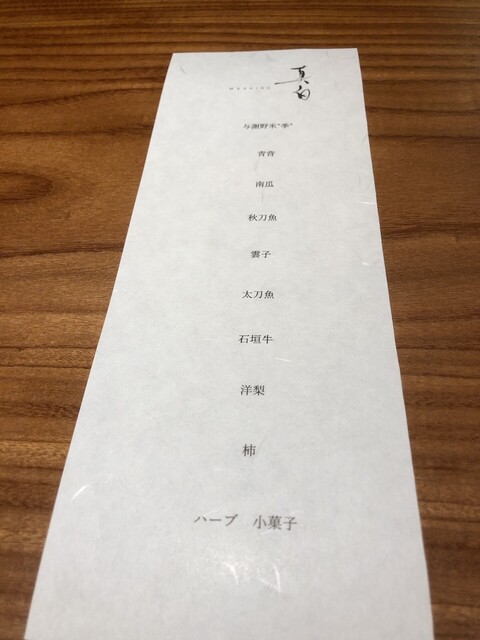 真白
与謝野米"季"
青首
南瓜
秋刀魚
雲子
太刀魚
石垣牛
洋梨
柿
ハーブ 小菓子